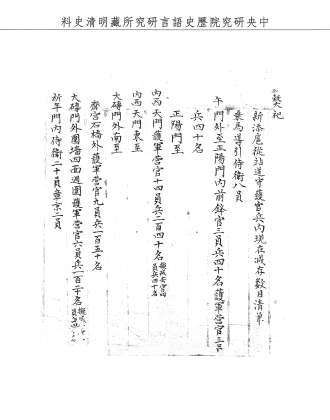 中央研究院歷史語言研究所藏明清史料
祀
新添扈從站道守護官兵內現在減存數目清單
乘馬導引侍衛八員
午門外至正陽門內前鋒官三員兵四十名護軍營官三員
兵四十名
正陽門至
天門護軍營官十四員兵二百四十名
內西天門東至
大磚門外南至
齋宮石橋外護軍營官九員兵一百五十名
大磚門外圍墻四面週圍護軍營官六員兵一百二十名
祈年門內侍衛二十員章京三員